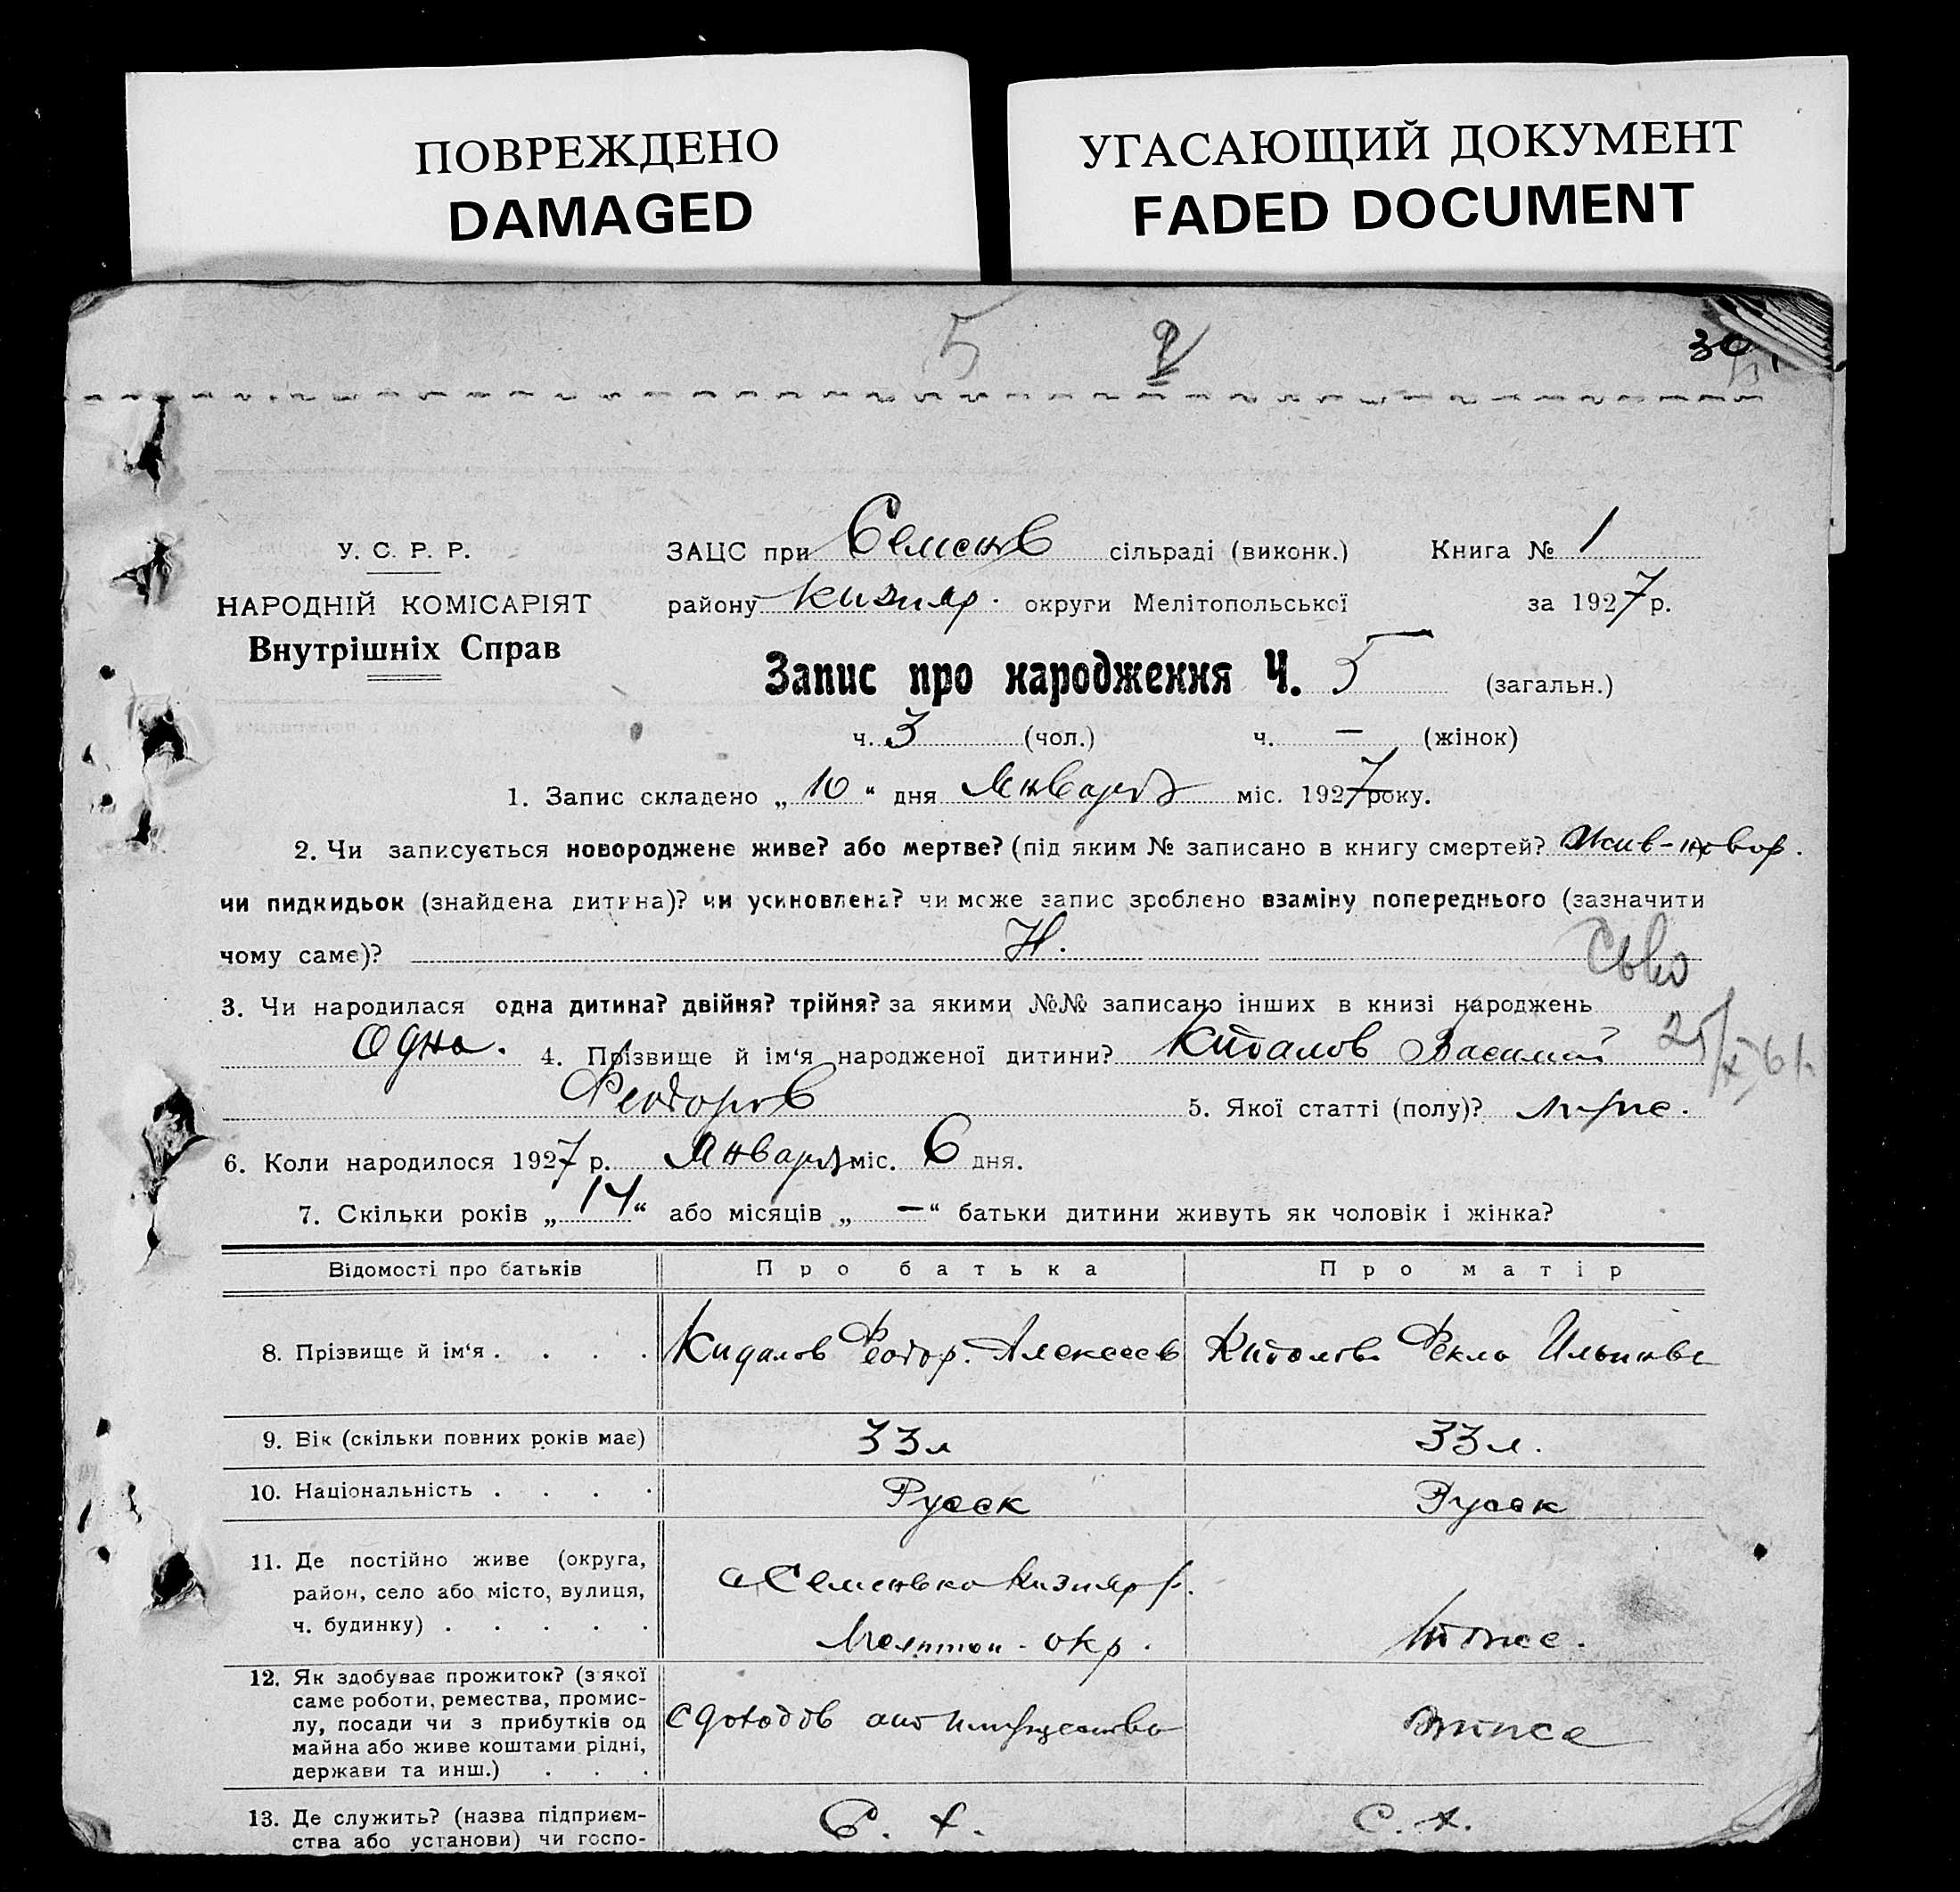 ПОВРЕЖДЕНО
DAMAGED
УГАСАЮЩИЙ ДОКУМЕНТ
FADED DOCUMENT
5
У. С. Р. Р.
НАРОДНІЙ КОМІСАРІЯТ
Внутрішніх Справ
ЗАЦС при Семенов сільраді (виконк.) Книга № 1
району Кизияр. округи Мелітопольської за 1927 р.
Запис про народження Ч. 5 (загальн.)
ч. 3 (чол.) ч. — (жінок)
1. Запис складено „ 10 “ дня Января міс. 1927 року.
2. Чи записується новороджене живе? або мертве? (під яким № записано в книгу смертей? Жив-
чи пидкидьок (знайдена дитина)? чи усиновлена? чи може запис зроблено взаміну попереднього (зазначити
чому саме)? Н.
Св-во
25/X 61.
3. Чи народилася одна дитина? двійня? трійня? за якими №№ записано інших в книзі народжень
Одна. 4. Прізвище й ім‘я народженої дитини? Кидалов Василий
Феодоров 5. Якої статті (полу)? муж.
6. Коли народилося 1927 р. Января міс. 6 дня.
7. Скільки років „ 14 “ або місяців „ — “ батьки дитини живуть як чоловік і жінка?
Відомості про батьків Про батька Про матір
8. Прізвище й ім‘я . . . . Кидалов Феодор. Алексеев Кидалова Фекла Ильинов
9. Вік (скільки повних років має) 33л 33л.
10. Національність . . . . Русск Русск
11. Де постійно живе (округа,
район, село або місто, вулиця,
ч. будинку) . . . . .
с Семеновка Кизияр р.
Мелитоп - окр. тоже.
12. Як здобуває прожиток? (з якої
саме роботи, ремества, промис-
лу, посади чи з прибутків од
майна або живе коштами рідні,
держави та инш.) . . .
С доходов имущества тоже
13. Де служить? (назва підприєм-
ства або установи) чи госпо-
С. х. С. х.